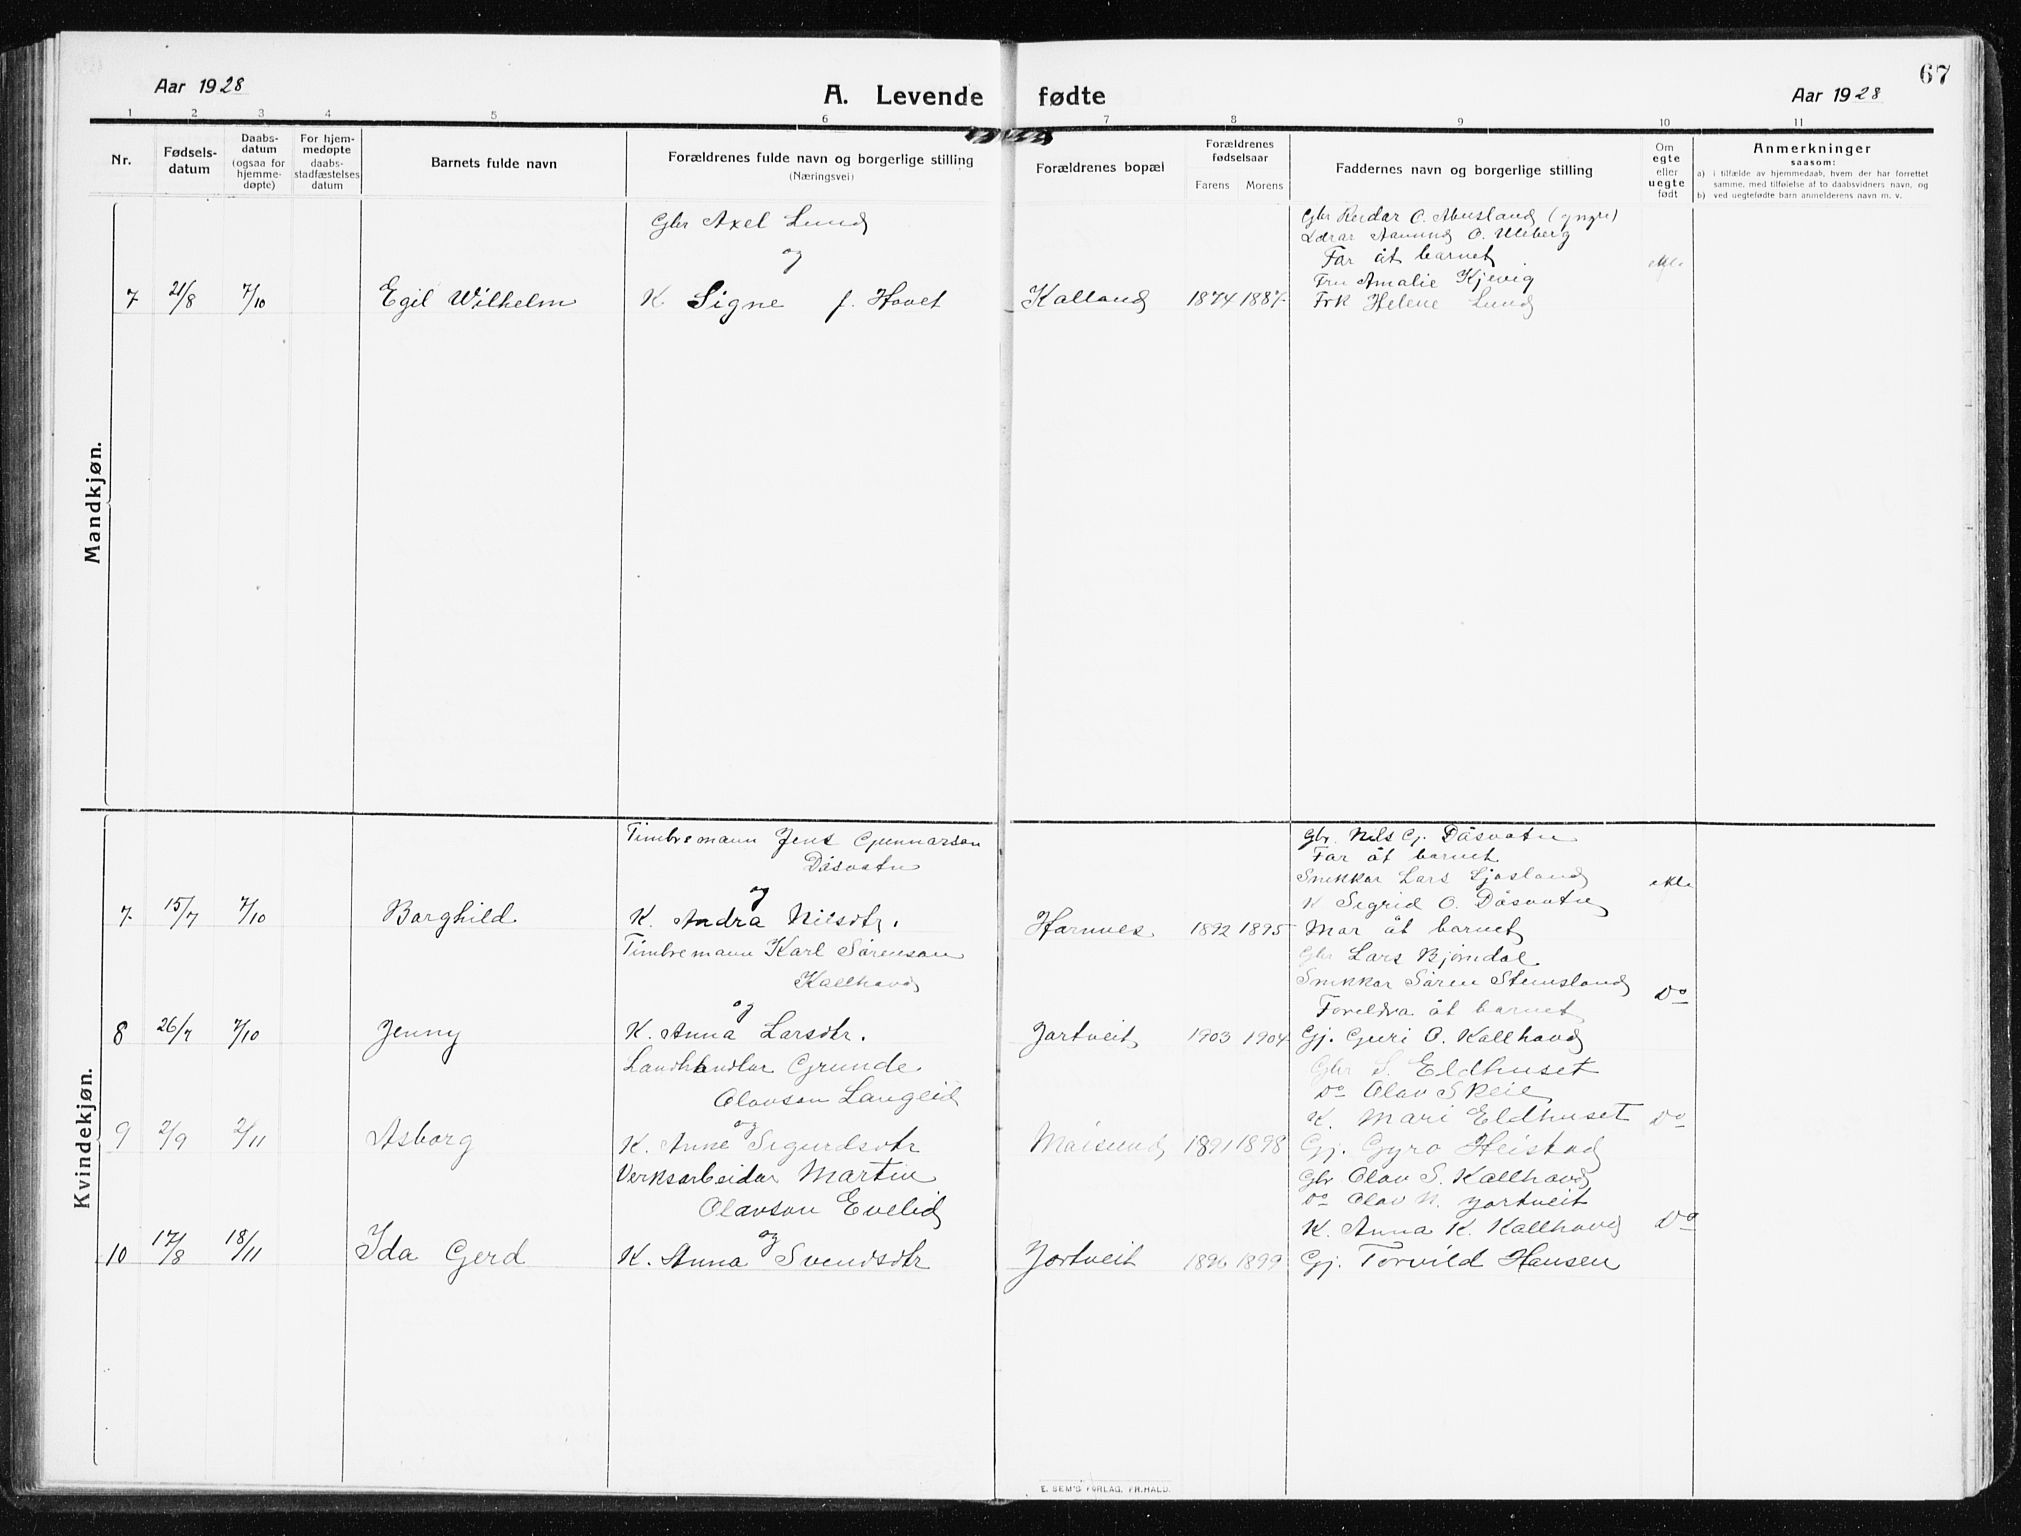 67
Aar 1928
A. Levende fødte
Aar 1928
1 2 3 4 5 6 7 8 9 10 11
Nr.
Fødsels-
datum
Daabs-
datum
(ogsaa for
hjemme-
døpte)
For hjem-
medøpte
daabs-
stadfæstelses
datum
Barnets fulde navn
Forældrenes fulde navn og borgerlige stilling
(Næringsvei)
Forældrenes bopæl
Forældrenes
fødselsaar
Farens Morens
Faddernes navn og borgerlige stilling
Om
egte
eller
uegte
født
Anmerkninger
saasom:
a) i tilfælde av hjemmedaab, hvem der har forrettet
samme, med tilføielse af to daabsvidners navn, og
b) ved uegtefødte barn anmelderens navn m. v.
Mandkjøn.
Gbr Axel Lund
og
7 21/8 7/10 Egil Wilhelm K Signe f. Hovet Kalland 1874 1887
Gbr Reidar O. Abusland (yngre)
Lærar Aamund O. Uleberg
Far åt barnet
Fru Amalie Kjevig
Frk Helene Lund
ekte
Kvindekjøn.
Timbremann Jens Gunnarson
Dåsvatn
og
7 15/7 7/10 Borghild K. Andra Nilsdtr. Hornnes 1892 1895
Gbr. Nils Gj. Dåsvatn
Far åt barnet
Snikkar Lars Ljosland
K Sigrid O. Dåsvatn
Mor åt barnet
ekte
Timbremann Karl Sørenson
Kallhovd
og
8 26/7 7/10 Jenny K. Anna Larsdtr. Jortveit 1903 1904
Gbr Lars Bjørndal
Snikkar Søren Stemsland
Foreldra åt barnet
Gj. Guri O. Kallhovd
Do
Landhandlar Grunde
Olavson Langeid
og
9 2/9 2/11 Asborg K. Anne Sigurdsdtr Moisund 1891 1898
Gbr S. Eldhuset
Do Olav Skeie
K. Mari Eldhuset
Gj. Gyro Heistad
Do
Verksarbeidar Martin
Olavson Evelid
og
10 17/8 18/11 Ida Gerd K. Anna Svendsdtr Jortveit 1896 1899
Gbr Olav S. Kallhovd
Do Olav N. Jortveit
K. Anna K. Kallhovd
Gj. Torvild Hansen
Do
E. SEM'S FORLAG. FR.HALD.